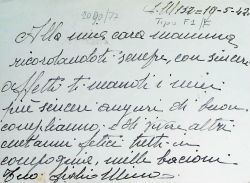 2090/77
1.11/152=19-5-42
Tipo F1/E
Alla mia cara mamma
ricordandoti sempre, con sincero
affetto ti mando i miei
più sinceri auguri di buon
compleanno, e di altri
cent'anni felici tutti in
compagnia, mille bacioni
tuo figlio